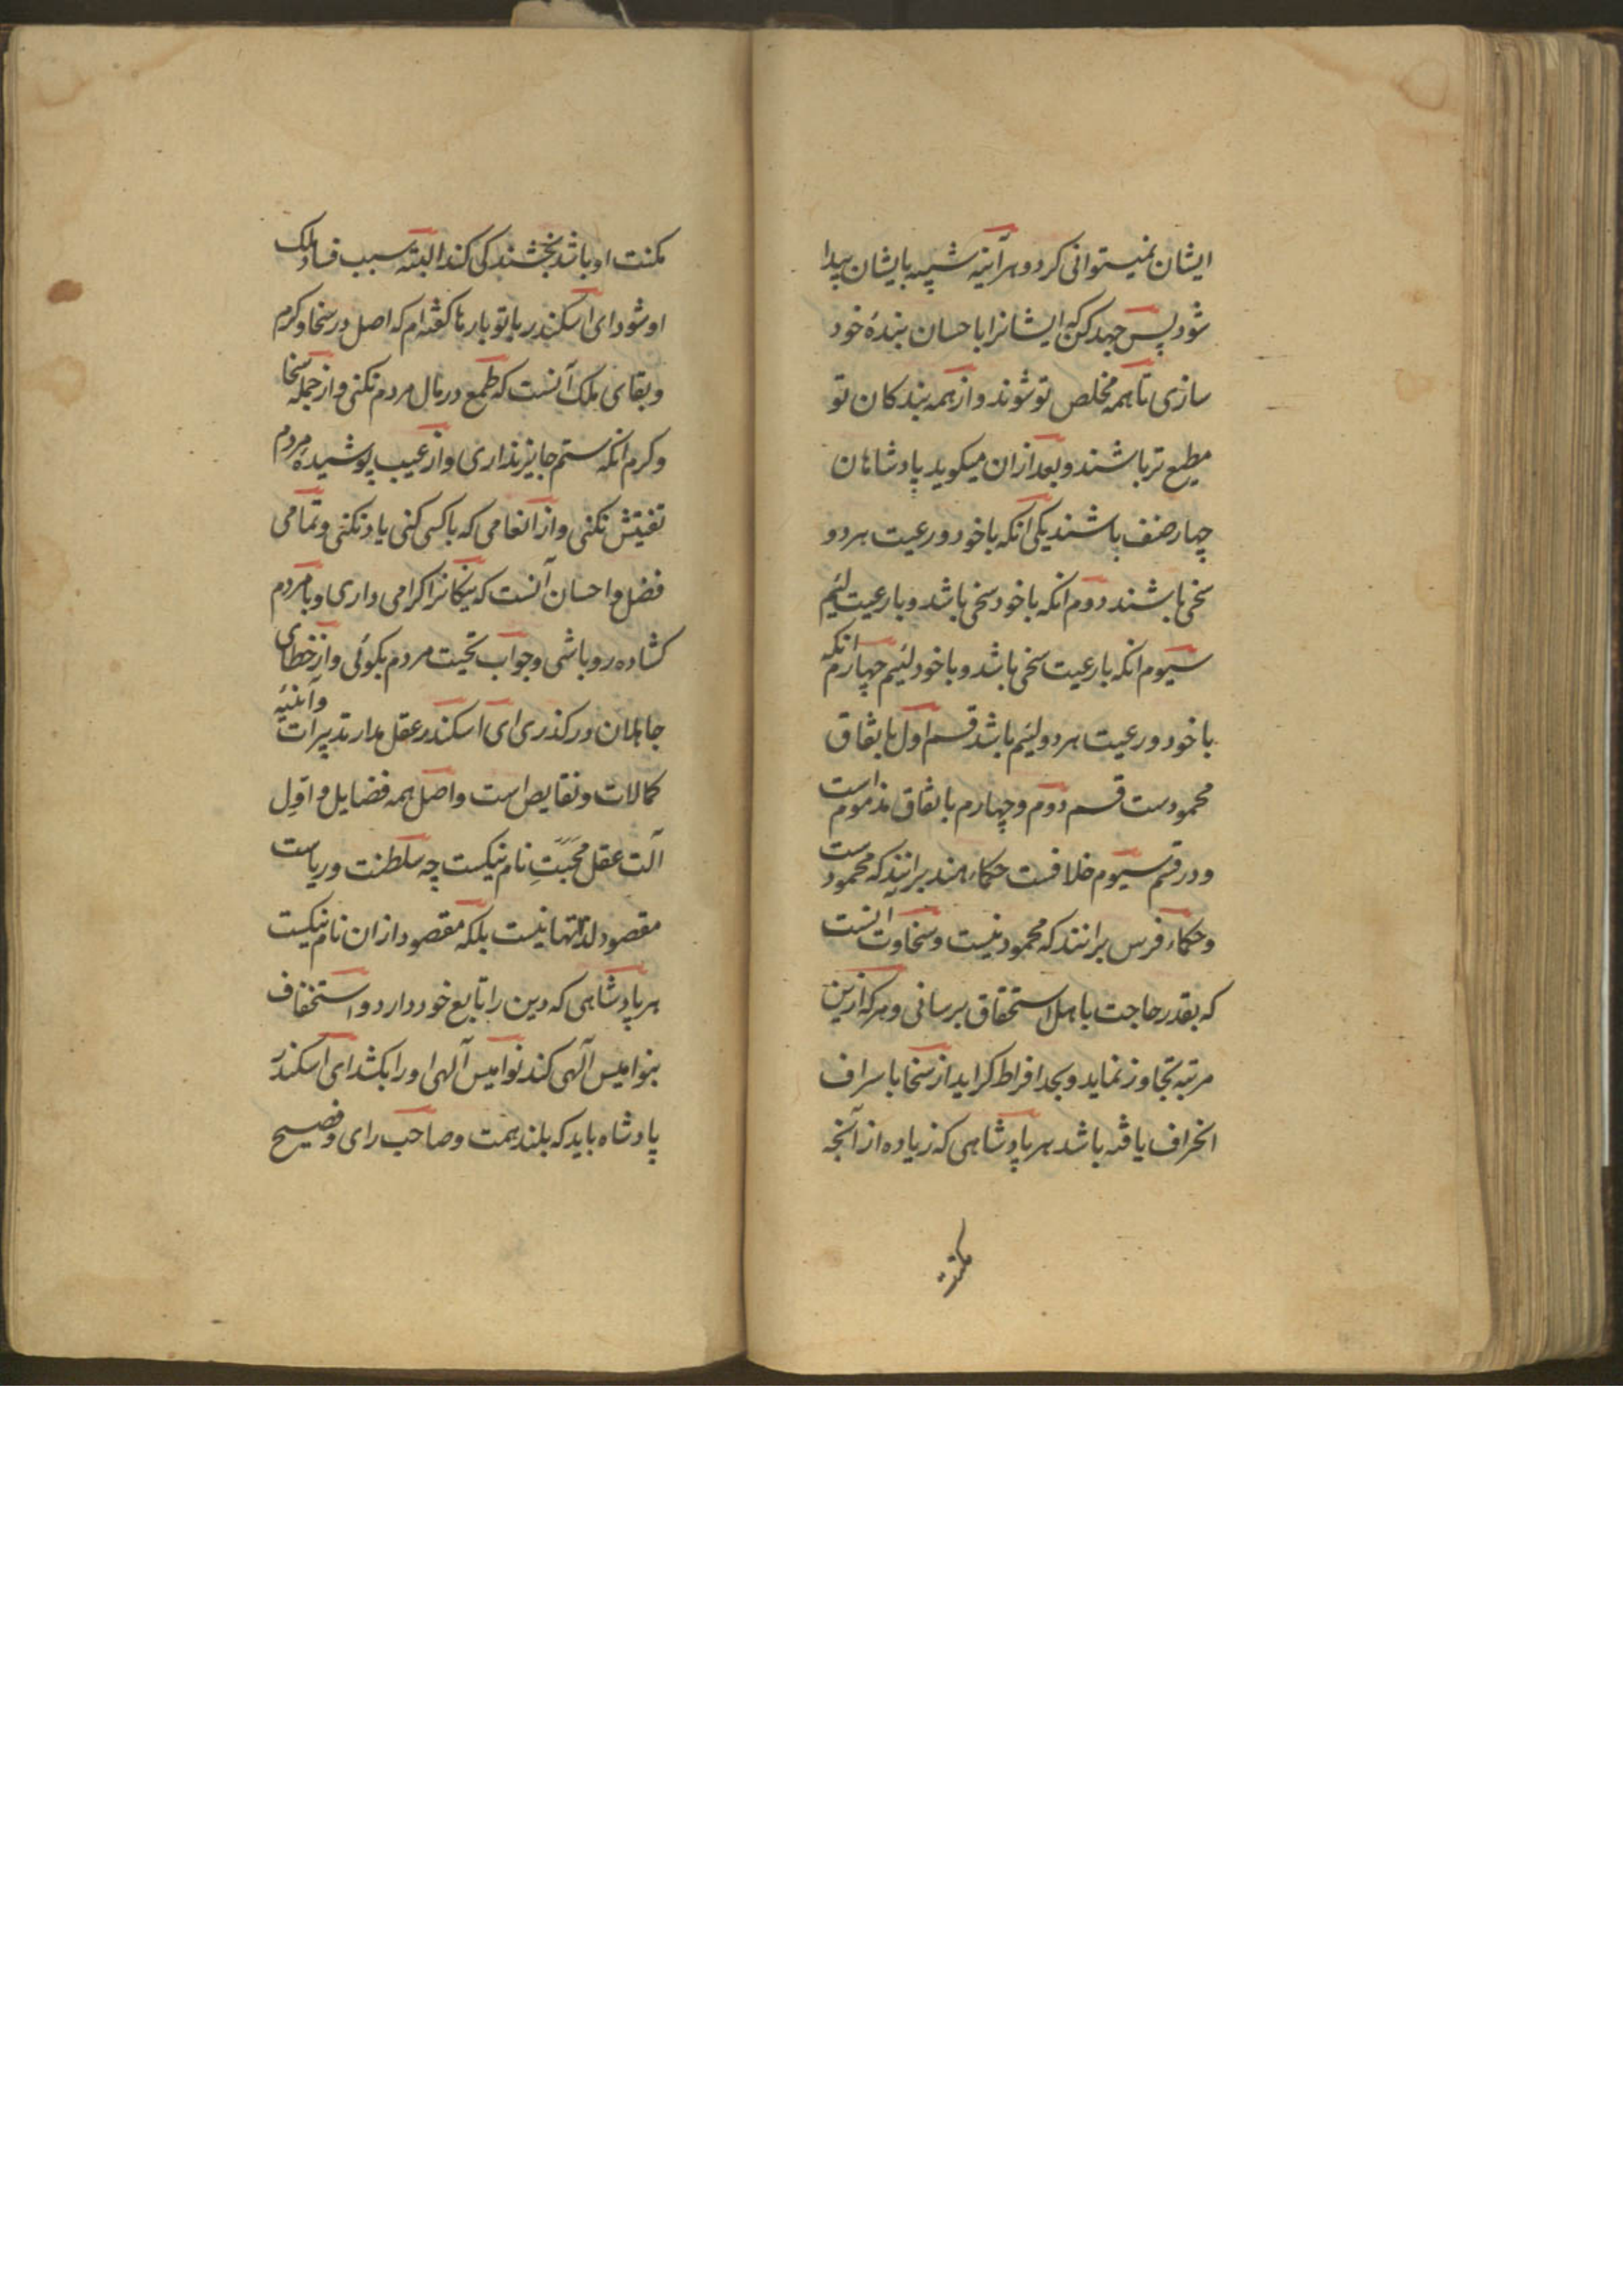 ایشان نمیتوانی کرد و هر آینه شبیه بایشان پیدا
شود پس جهد کن که ایشانرا باحسان بندهٔ خود
سازی تا همه مخلص تو شوند و از همه بندکان تو
مطیع تر باشند و بعد ازان میکوید پادشاهان
چهار صنف باشند یکی انکه باخود و رعیت هر دو
سخی باشند دوم انکه باخود سخی باشد و بارعیت لئیم
سیوم انکه بارعیت سخی باشد و باخود لئیم چهارم انکه
باخود و رعیت هر دو لئیم باشد قسم اول باتفاق
محمودست قسم دوم و چهارم باتفاق مذموم است
و در قسم سیوم خلافست حکماء هند برانند که محمودست
و حکماء فرس برانند که محمود نیست و سخاوت آنست
که بقدر حاجت باهل استحقاق برسانی و هر که ازین
مرتبه تجاوز نماید و بحد افراط کراید از سخا باسراف
انحراف یافته باشد هر پادشاهی که زیاده از آنچه
مکنت
مکنت او باشد بخشندکی کند البته سبب فساد ملک
او شود ای اسکندر با تو بارها کفته ام که اصل در سخا و کرم
و بقای ملک آنست که طمع در مال مردم نکنی و از جمله سخا
و کرم انکه ستم جایز نداری و از عیب پوشیدهٔ مردم
تفتیش نکنی و از انعامی که باکسی کنی یاد نکنی و تمامی
فضل و احسان آنست که نیکانرا کرامی داری و با مردم
کشاده رو باشی و جواب تحیت مردم بکوئی و از خطای
جاهلان در کذری ای اسکندر عقل مدار تدبیرات و آینهٔ
کمالات و نقایص است و اصل همه فضایل و اوّل
آلت عقل محبّتِ نام نیکست چه سلطنت و ریاست
مقصود لذاتها نیست بلکه مقصود ازان نام نیکست
هر پادشاهی که دین را تابع خود دارد و استخفاف
بنوامیس آلهی کند نوامیس آلهی او را بکشد ای اسکندر
پادشاه باید که بلند همت و صاحب رای و فصیح